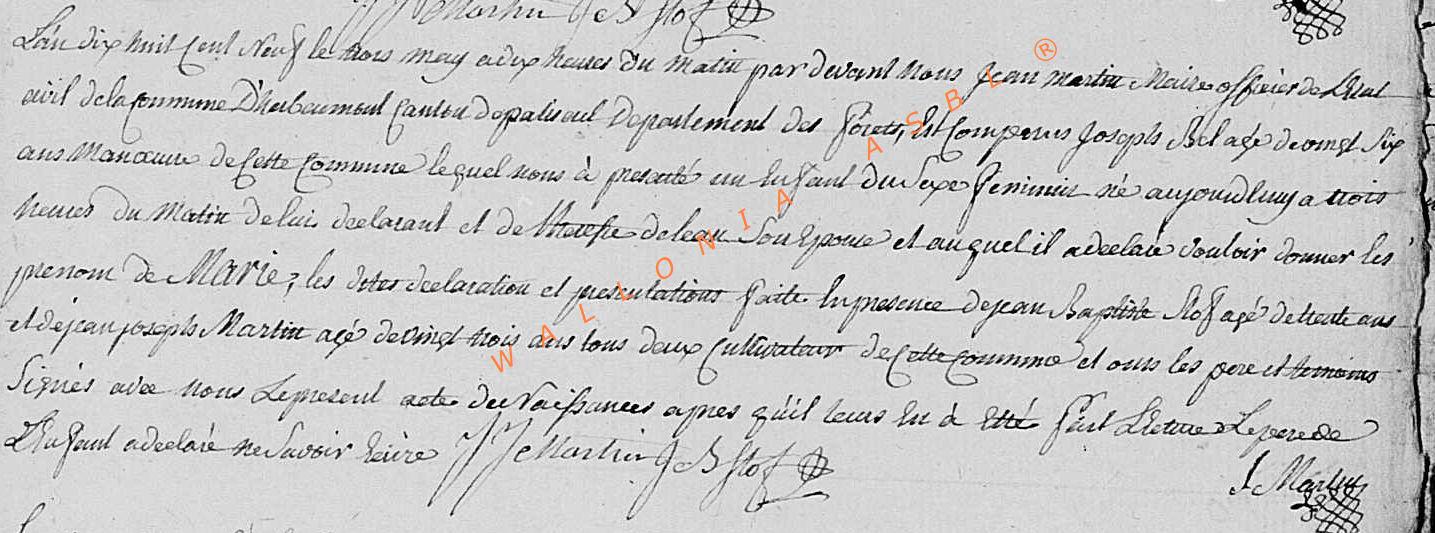 J J Martin J B Stof
L'an dix huit Cent Neuf le trois may a dix heures du matin par devant Nous Jean Martin Maire officier de L'Etat
civil de la Commune D'herbeumont Canton de paliseul Departement des forets, Est Comparus Joseph Bel agé de vingt Six
ans Manœuvre de Cette Commune lequel nous à presenté un Enfant du Sexe feminin né aujourdhuy a trois
heures du Matin de lui declarant et de Son Epouse et auquel il a declaré vouloir donner les
prenom de Marie, les dites declaration et presentations faite En presence de jean Baptiste Stof agé de trente ans
et de jean joseph Martin agé de vingt trois ans tous deux Cultivateur de Cette Commune et onts les pere et temoins
Signés avec nous Le present acte de Naissances apres qu'il leurs En à Etté fait Lecture Le pere de
L'Enfant a declaré ne Savoir Ecrire J J Martin J B Stof
J Martin
WALLONIA ASBL ®